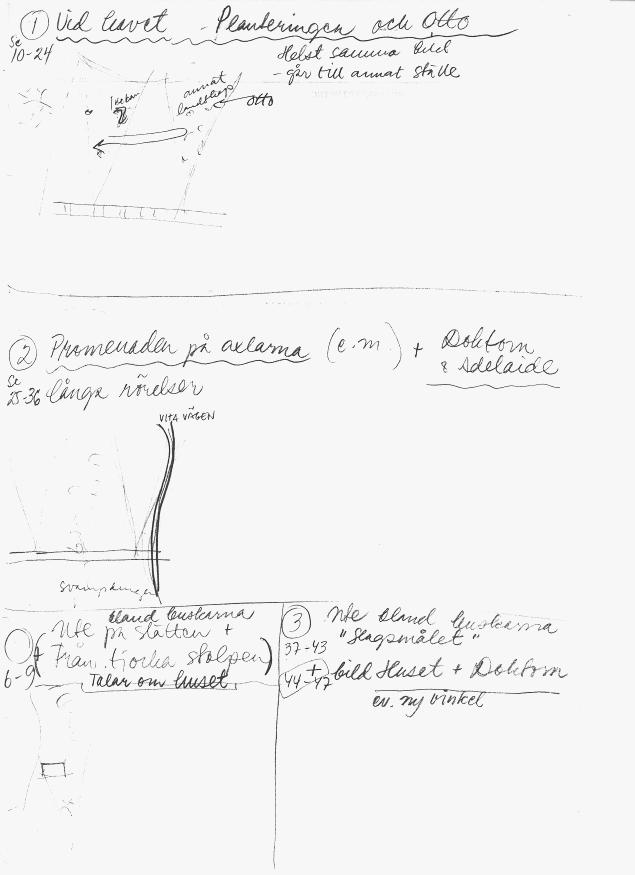 ① Vid havet - Planteringen och Otto
Se
10-24
Helst samma bild
- går till annat ställe
annat
landskap
Otto
② Promenaden på axlarna (e.m.) + Doktorn
& Adelaide
Se
25-36 långa rörelser
VITA VÄGEN
bland buskarna
Ute på slätten +
Från tjocka stolpen)
6-9
Talar om huset
③ Ute bland buskarna
37-43 "Slagsmålet"
+
44-47 bild Huset + Doktorn
ev. ny vinkel